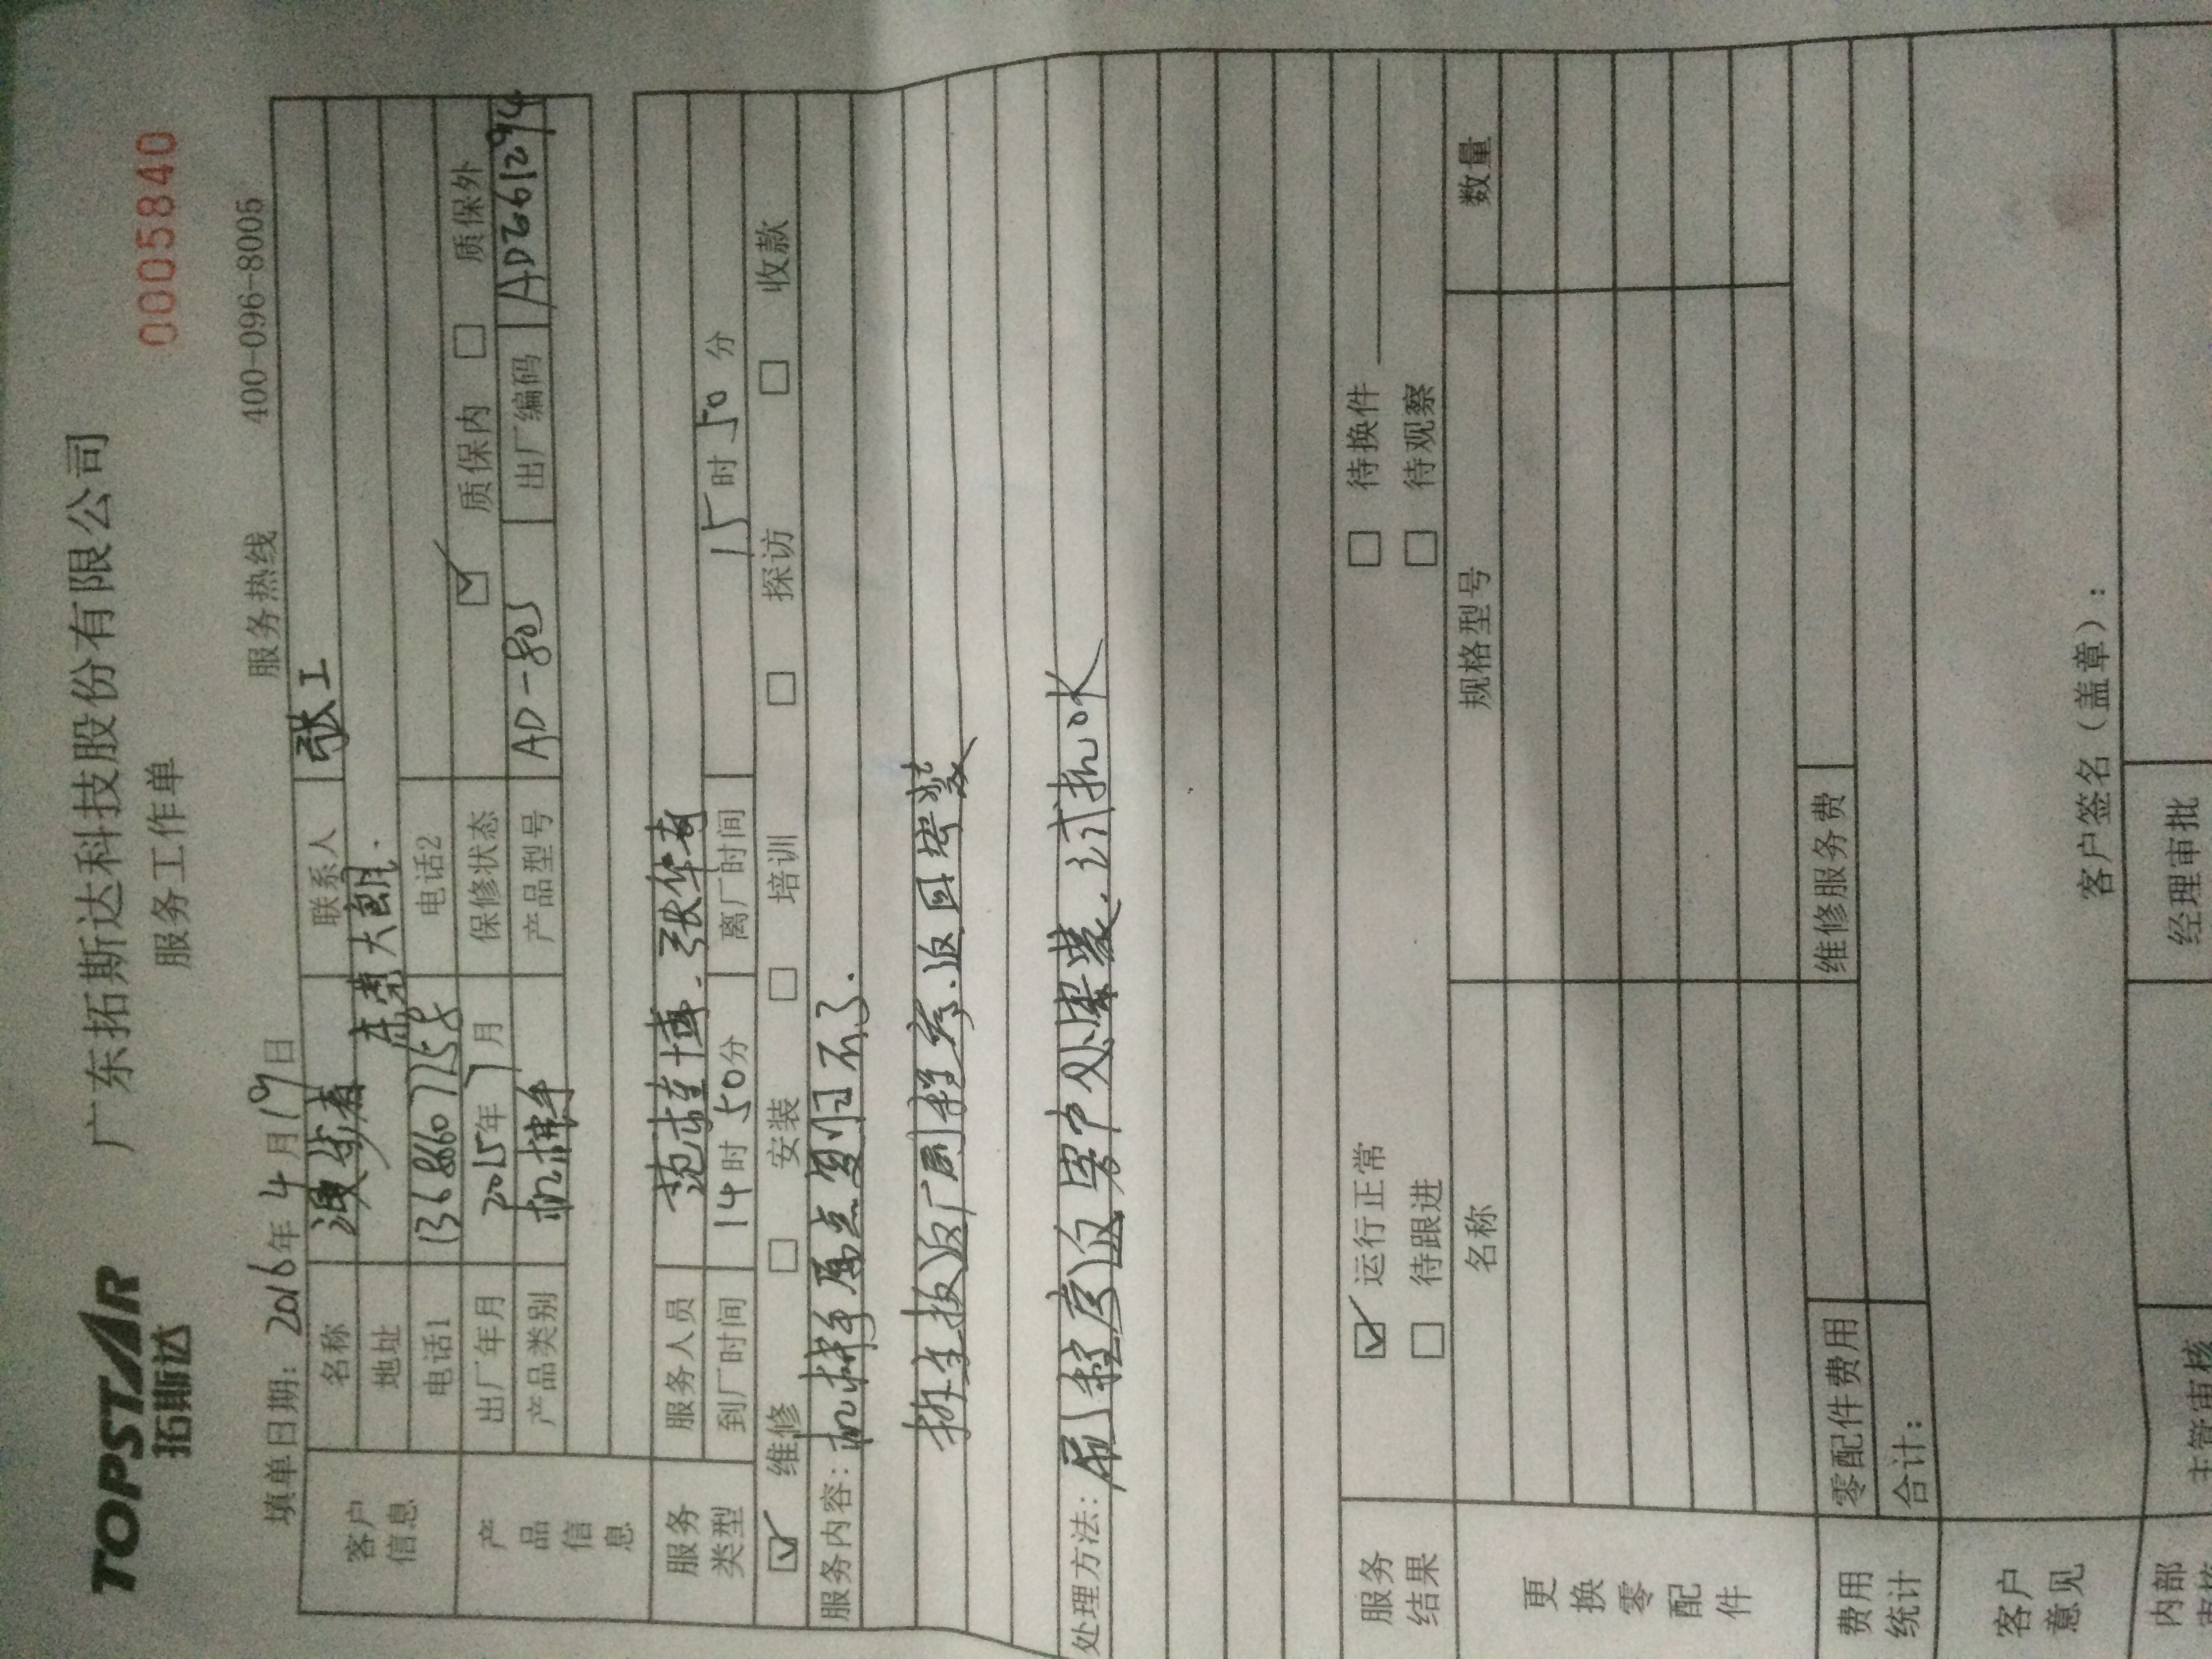 TOPSTAR
拓斯达
广东拓斯达科技股份有限公司
服务工作单
0005840
填单日期: 2016年4月19日
服务热线 400-096-8005
客户信息
名称 联系人 张工
地址 东莞大朗.
电话1 13686607258 电话2
产品信息
出厂年月 2015年7月 保修状态 ☑ 质保内 □ 质保外
产品类别 机械手 产品型号 AD-80S 出厂编码 AD2661294
服务类型
服务人员 张华
到厂时间 14时50分 离厂时间 15时50分
☑ 维修 □ 安装 □ 培训 □ 探访 □ 收款
服务内容: 机械手原点复归不了.
拆主板返厂刷程序、返回安装
处理方法: 刷程序返客户处安装、试机OK
服务结果
☑ 运行正常 □ 待换件
□ 待跟进 □ 待观察
更换零配件
名称 规格型号 数量
费用统计
零配件费用 维修服务费
合计:
客户意见
客户签名（盖章）:
内部
主管审核 经理审批